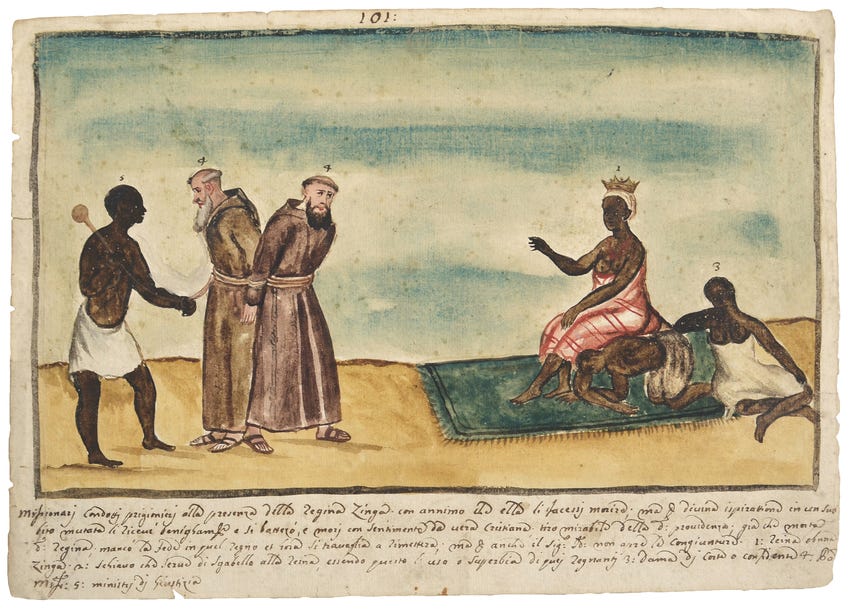 101:
5
4
4
1
3
Missionarij Condotti prigionieri alla presenza della Regina Zinga con annimo ella li facessi morire; ma divina ispiratione in un su
bito mutata li riceve e si battezò, e morì con sentimento da vera Cristiana tiro mirabile della d: providenza; già che morta
d: Regina, mancò la fede in quel Regno et si travaglia a rimettera; ma anche il Sig: non apre la Congiuntura 1: Reina
Zinga 2: Schiavo che serve di sgabello alla Reina, essendo questo l'uso o superbia di quei Regnanti 3: Dama di Corte o confidente 4.
5: ministro di Giustizia